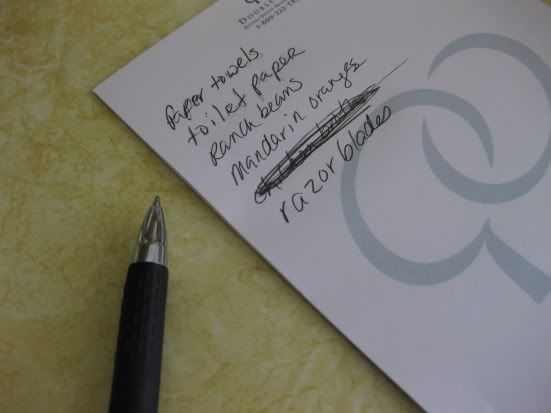 DOUBLE
1-800-222-
Paper towels
toilet paper
Ranch beans
mandarin oranges
razor blades